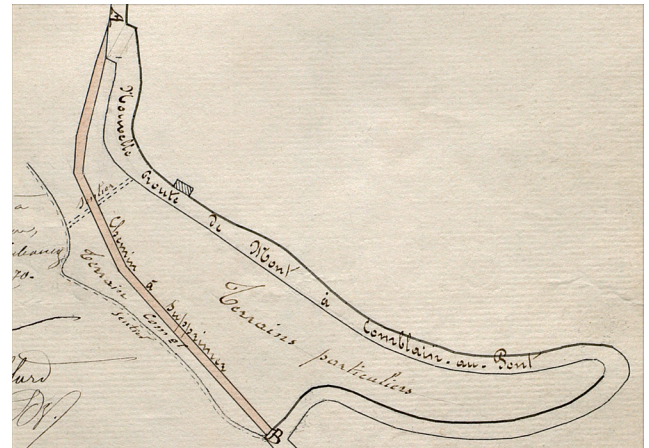 A
Nouvelle Route de Mont à Comblain-au-Pont
Sentier
Chemin à supprimer
Terrain Comet
sentier
Terrains particuliers
B
a
70.-